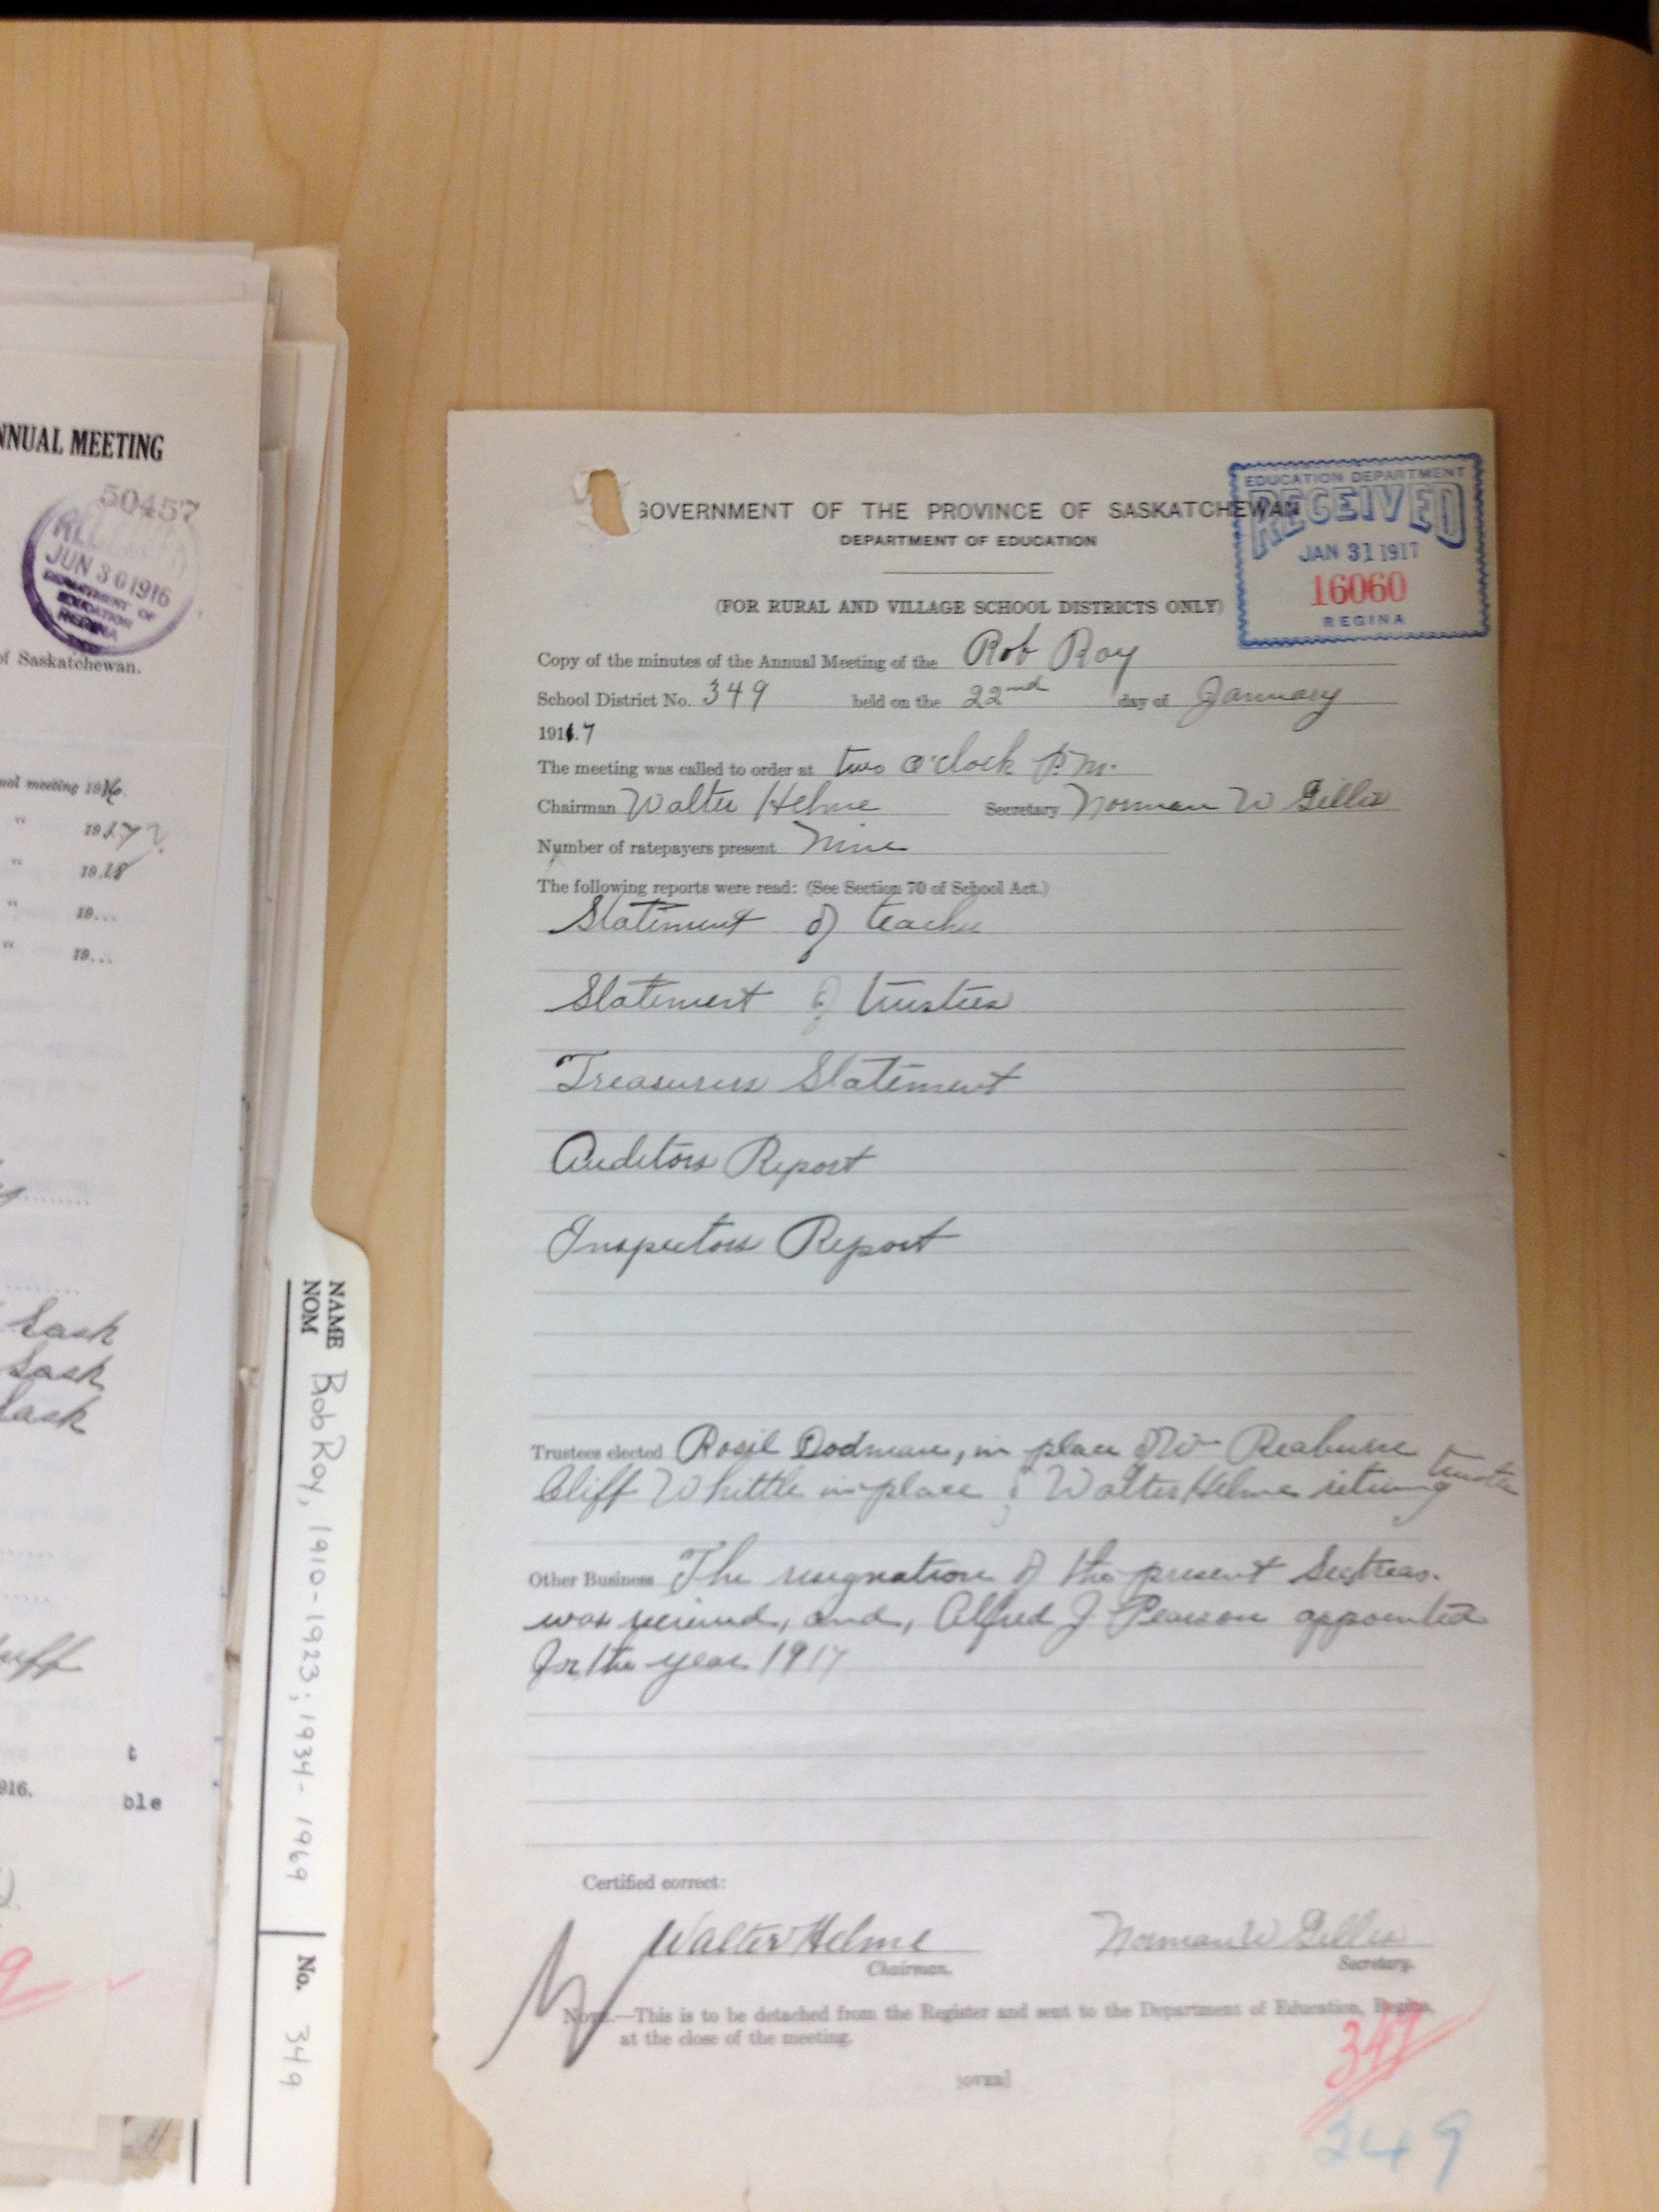 NNUAL MEETING
50457
RECEIVED
JUN 30 1916
DEPARTMENT OF
EDUCATION
REGINA
of Saskatchewan.
ual meeting 1916.
" 1917?
" 1918
" 19...
" 19...
Sask
Sask
Sask
uff
t
916.
ble
NAME
NOM
Rob Roy, 1910-1923; 1934-1969
No. 349
GOVERNMENT OF THE PROVINCE OF SASKATCHEWAN
DEPARTMENT OF EDUCATION
EDUCATION DEPARTMENT
RECEIVED
JAN 31 1917
16060
REGINA
(FOR RURAL AND VILLAGE SCHOOL DISTRICTS ONLY)
Copy of the minutes of the Annual Meeting of the Rob Roy
School District No. 349 held on the 22nd day of January
191.7
The meeting was called to order at two o'clock P.M.
Chairman Walter Helme Secretary Norman W Gillis
Number of ratepayers present Nine
The following reports were read: (See Section 70 of School Act.)
Statement of teacher
Statement of trustees
Treasurers Statement
Auditors Report
Inspectors Report
Trustees elected Dodman, in place of
Cliff Whittle in place of Walter Helme retiring trustee
Other Business The resignation of the present Sectreas.
was received, and, Alfred J Pearson appointed
for the year 1917
Certified correct:
Walter Helme Norman W Gillis
Chairman. Secretary.
NOTE.—This is to be detached from the Register and sent to the Department of Education, Regina,
at the close of the meeting.
[OVER]
349
349